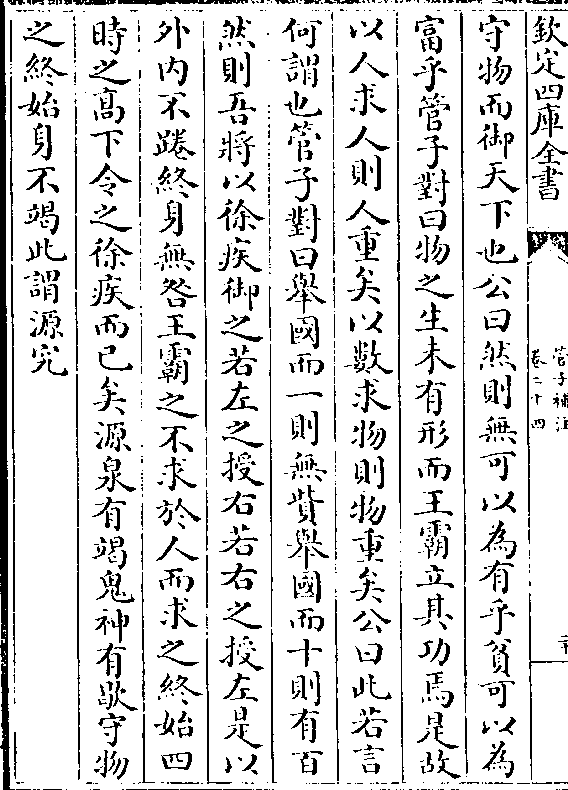 欽定四庫全書
管子補注
卷二十四
守物而御天下也公曰然則無可以為有乎貧可以為
富乎管子對曰物之生未有形而王霸立其功焉是故
以人求人則人重矣以數求物則物重矣公曰此若言
何謂也管子對曰舉國而一則無貲舉國而十則有百
然則吾將以徐疾御之若左之授右若右之授左是以
外内不踡終身無咎王霸之不求於人而求之終始四
時之髙下令之徐疾而已矣源泉有竭鬼神有歇守物
之終始身不竭此謂源究